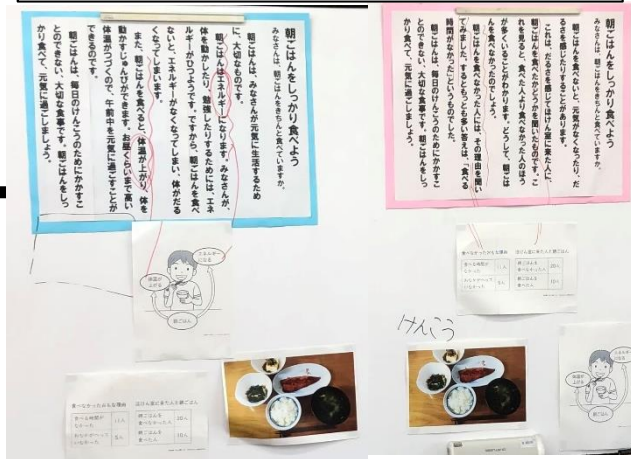 朝ごはんをしっかり食べよう
みなさんは、朝ごはんをきちんと食べていますか。
朝ごはんは、みなさんが元気に生活するため
に、大切なものです。
朝ごはんはエネルギーになります。みなさんが、
体を動かしたり、勉強したりするためには、エネ
ルギーがひつようです。ですから、朝ごはんを食べ
ないと、エネルギーがなくなってしまい、体がだる
くなってしまいます。
また、朝ごはんを食べると、体温が上がり、体を
動かすじゅんびができます。お昼くらいまで高い
体温がつづくので、午前中を元気に過ごすことが
できるのです。
朝ごはんは、毎日のけんこうのためにかかすこ
とのできない、大切な食事です。朝ごはんをしっ
かり食べて、元気に過ごしましょう。
エネルギーになる
体温が上がる
朝ごはん
食べなかったおもな理由
食べる時間がなかった
おなかがへっていなかった
ほけん室に来た人と朝ごはん
朝ごはんを食べなかった人
朝ごはんを食べた人
朝ごはんをしっかり食べよう
みなさんは、朝ごはんをきちんと食べていますか。
朝ごはんを食べないと、元気がなくなったり、だ
るさを感じたりすることがあります。
これは、だるさを感じてほけん室に来た人に、
朝ごはんを食べたかどうかを聞いたものです。こ
れを見ると、食べた人より食べなかった人のほう
が多くいることがわかります。どうして、朝ごは
んを食べなかったのでしょう。
朝ごはんを食べなかった人には、その理由を聞い
てみました。するともっとも多い答えは、「食べる
時間がなかった」というものでした。
朝ごはんは、毎日のけんこうのためにかかすこ
とのできない、大切な食事です。朝ごはんをしっ
かり食べて、元気に過ごしましょう。
食べなかったおもな理由
食べる時間がなかった
おなかがへっていなかった
ほけん室に来た人と朝ごはん
朝ごはんを食べなかった人
朝ごはんを食べた人
けんこう
エネルギーになる
体温が上がる
朝ごはん